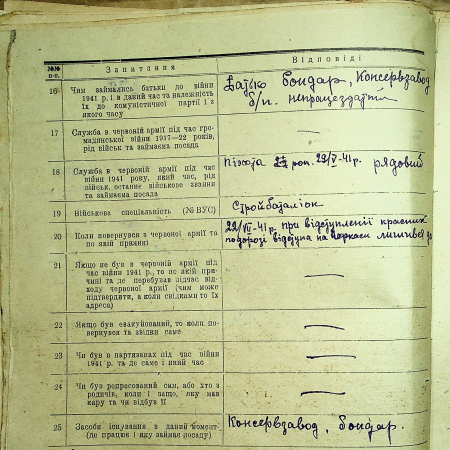 №№ п.п.
Запитання
Відповіді
16 Чим займались батьки до війни
1941 р. і в даний час та належність
їх до комуністичної партії і з
якого часу
Батько бондар, Консервзавод
б/п. непрацездатні
17 Служба в червоній армії під час гро-
мадянської війни 1917—22 років,
рід військ та займаєма посада
—
18 Служба в червоній армії під час
війни 1941 року, який час, рід
військ, останнє військове звання
та займаєма посада
Піхота рядовий
19 Військова спеціальність (№ ВУС)
Стройбаталіон
20 Коли повернувся з червоної армії та
по якій причині
при відступленії красних
по дорозі на Черкаси
21 Якщо не був в червоній армії під
час війни 1941 р., то по якій при-
чині та де перебував підчас від-
ходу червоної армії (чим може
підтвердити, а коли свідками то їх
адреса)
—
22 Якщо був евакуйований, то коли по-
вернувся та звідки саме
—
23 Чи був в партизанах під час війни
1941 р. та де саме і який час
—
24 Чи був репресований сам, або хто з
родичів, коли і защо, яку мав
кару та чи відбув її
—
25 Засоби існування в даний момент
(де працює і яку займає посаду)
Консервзавод, бондар.